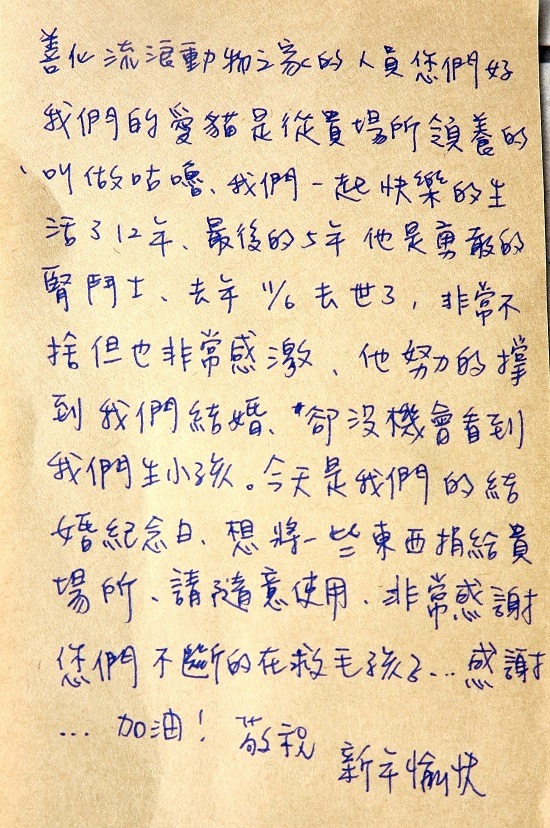 善化流浪動物之家的人員您們好
我們的愛貓是從貴場所領養的
、叫做咕嚕、我們一起快樂的生
活了12年、最後的5年他是勇敢的
腎鬥士、去年11/6去世了，非常不
捨但也非常感激、他努力的撐
到我們結婚、卻沒機會看到
我們生小孩。今天是我們的結
婚紀念日、想將一些東西捐給貴
場所、請隨意使用、非常感謝
您們不斷的在救毛孩子...感謝
... 加油！ 敬祝
新年愉快